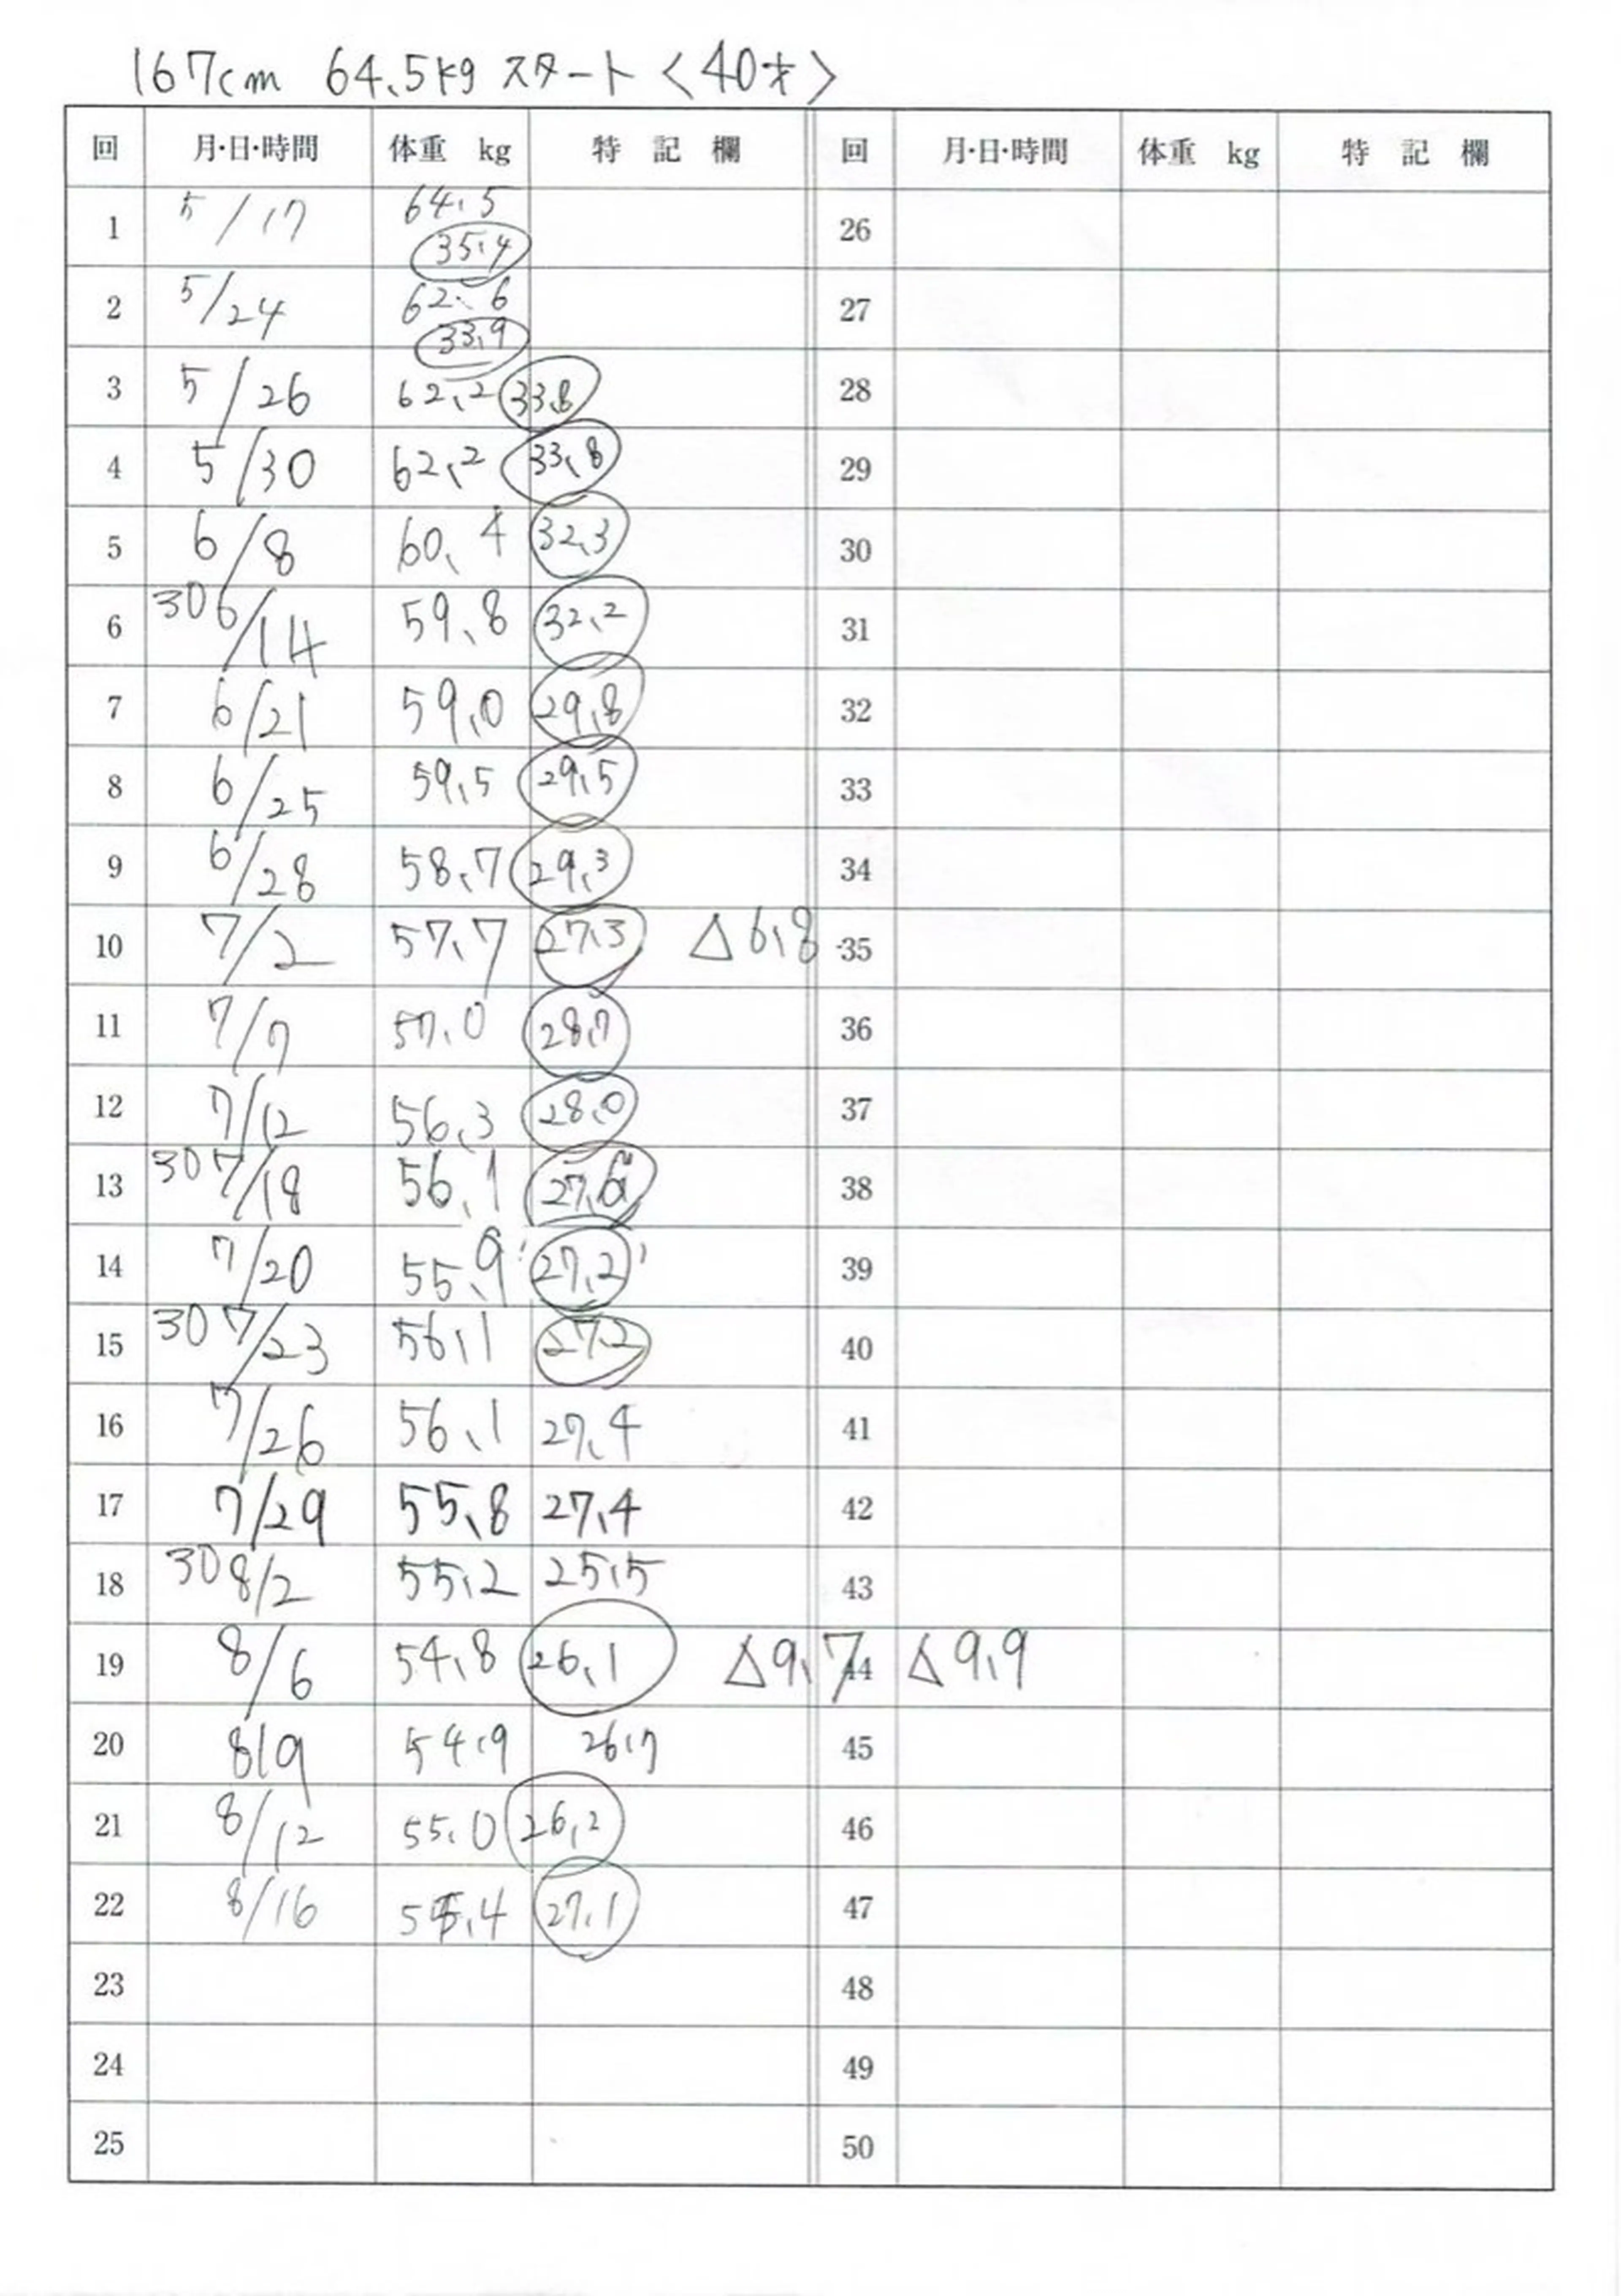 167cm 64.5kg スタート〈40才〉
回 月・日・時間 体重 kg 特記欄 回 月・日・時間 体重 kg 特記欄
1 5/17 64.5 35.4 26
2 5/24 62.6 33.9 27
3 5/26 62.2 33.8 28
4 5/30 62.2 33.8 29
5 6/8 60.4 32.3 30
6 30 6/14 59.8 32.2 31
7 6/21 59.0 29.8 32
8 6/25 59.5 29.5 33
9 6/28 58.7 29.3 34
10 7/2 57.7 27.3 △6.8 35
11 7/7 57.0 28.7 36
12 7/12 56.3 28.0 37
13 30 7/18 56.1 27.6 38
14 7/20 55.9 27.2 39
15 30 7/23 56.1 27.2 40
16 7/26 56.1 27.4 41
17 7/29 55.8 27.4 42
18 30 8/2 55.2 25.5 43
19 8/6 54.8 26.1 △9.7 44 △9.9
20 8/9 54.9 26.7 45
21 8/12 55.0 26.2 46
22 8/16 27.1 47
23 48
24 49
25 50